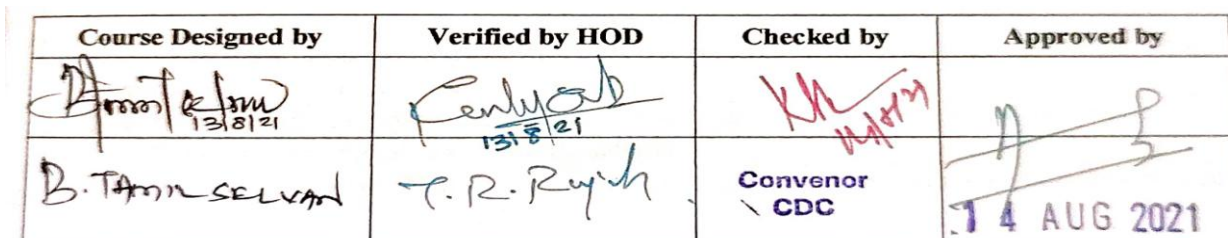 Course Designed by Verified by HOD Checked by Approved by
13/8/21 13/8/21
B. TAMILSELVAN T. R. Convenor
CDC
14 AUG 2021